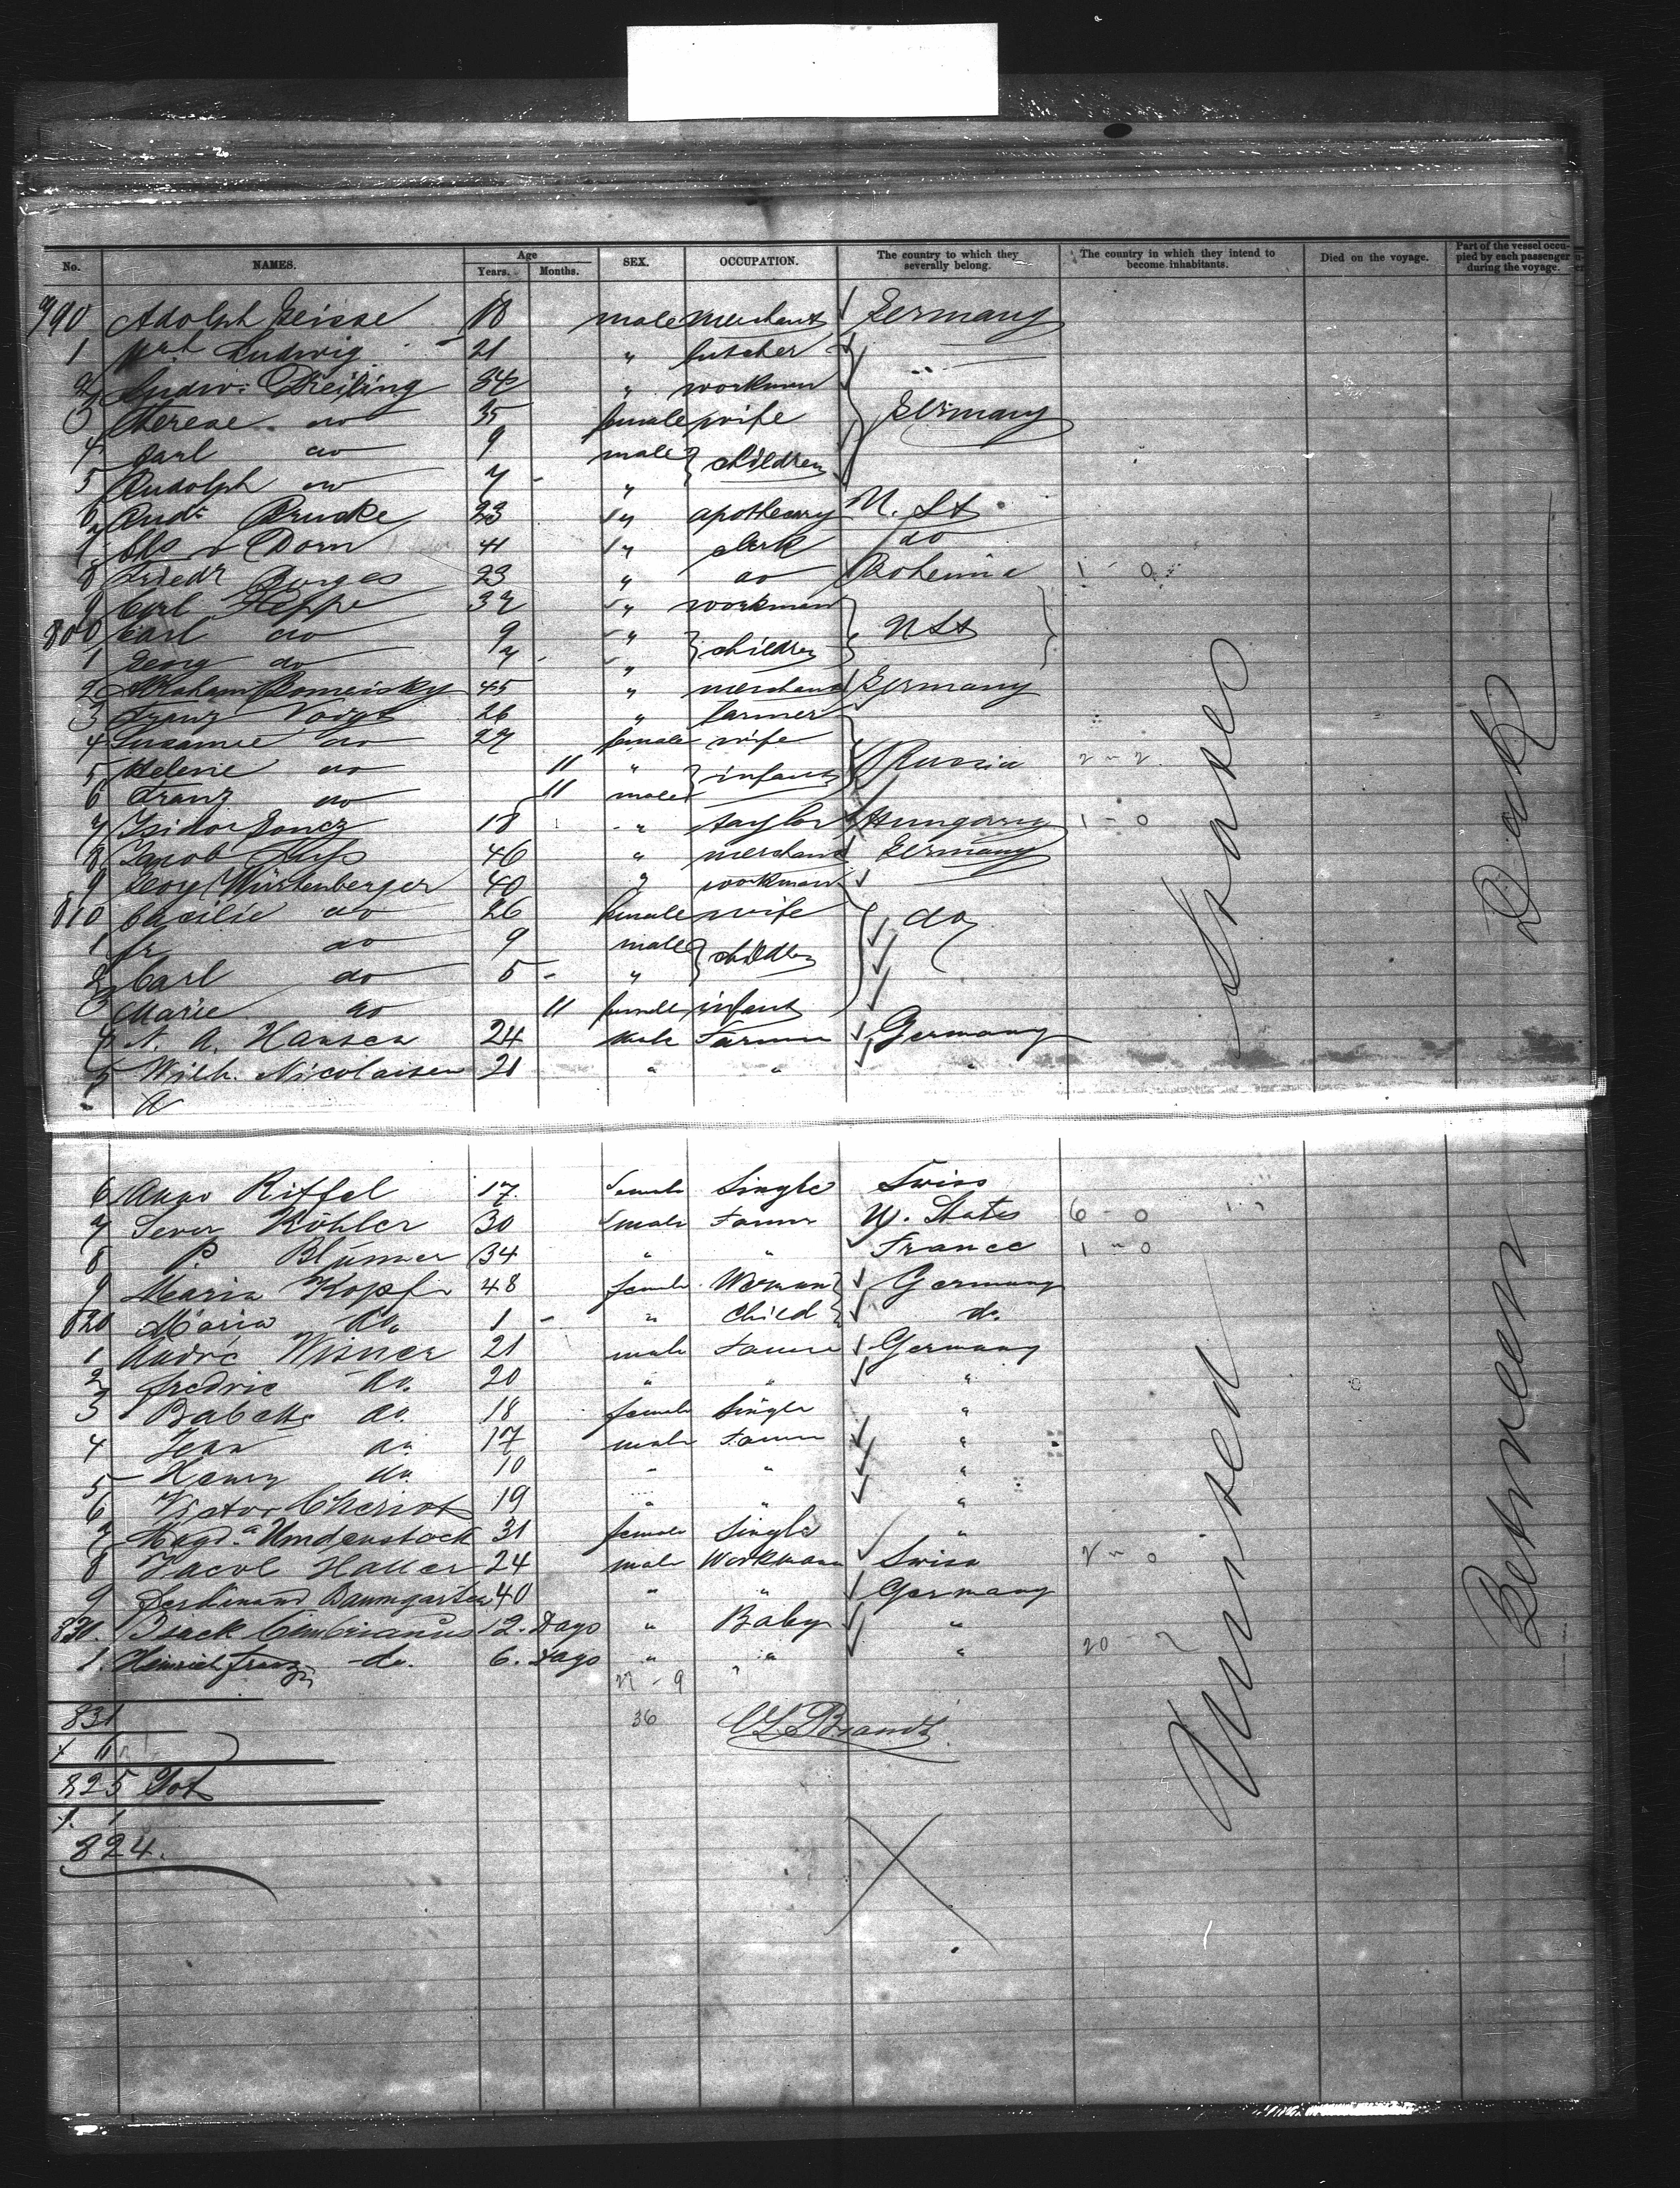 No. NAMES. Age Years. Months. SEX. OCCUPATION. The country to which they severally belong. The country in which they intend to become inhabitants. Died on the voyage. Part of the vessel occupied by each passenger during the voyage.
790 Adolph Geisse 18 male merchant Germany
1 Ludwig 21 " butcher
2 Ludw: Dreiling 34 " workman
3 Therese do 35 female wife Germany
4 Carl do 9 male children
5 Rudolph do 7 "
6 Rud: Brucke 23 " apothecary U. St
7 Chs v Dorn 41 " clerk do
8 Friedr Borges 23 " do Bohemia 1 - 0
9 Carl Heppe 32 " workman
800 Carl do 9 " children U St
1 Georg do 7 "
2 Abraham Bomeisky 45 " merchand Germany
3 Franz Voigt 26 " farmer
4 Susanne do 27 female wife
5 Helene do 11 " infants Russia 2 - 2
6 Franz do 11 male
7 Isidor Goncz 18 " taylor Hungary 1 - 0
8 Jacob 46 " merchand Germany
9 Georg Würtenberger 40 " workman
810 Cacilie do 26 female wife do
1 Fr do 9 male children
2 Carl do 5 - "
3 Marie do 11 female infant
4 N. A. Hansen 24 male Farmer Germany
5 Wilh. Nicolaisen 21 " " "
States
Deck
6 Anna Riffel 17 female Single Swiss
7 Sever Köhler 30 male Farmer U. States 6 - 0
8 P. Blümer 34 " " France 1 - 0
9 Maria Kopf 48 female Woman Germany
820 Maria do. 1 - " Child do.
1 André Wisner 21 male Farmer Germany
2 fredric do. 20 " " "
3 Babette do. 18 female Single "
4 Jean do. 17 male Farmer "
5 Henry do. 10 " " "
6 Victor Cheriot 19 " " "
7 Magd.a Umdenstock 31 female Single "
8 Jacob Haller 24 male Workman Swiss 2 - 0
9 Ferdinand Baumgarten 40 " " Germany
830. Bjack Cimbrianus 12. Days " Baby "
1. Heinrich franz do. 6. Days " " " 20 - 2
27 - 9
831 36 CL Brandt
825 Tot
1
824.
United
Between